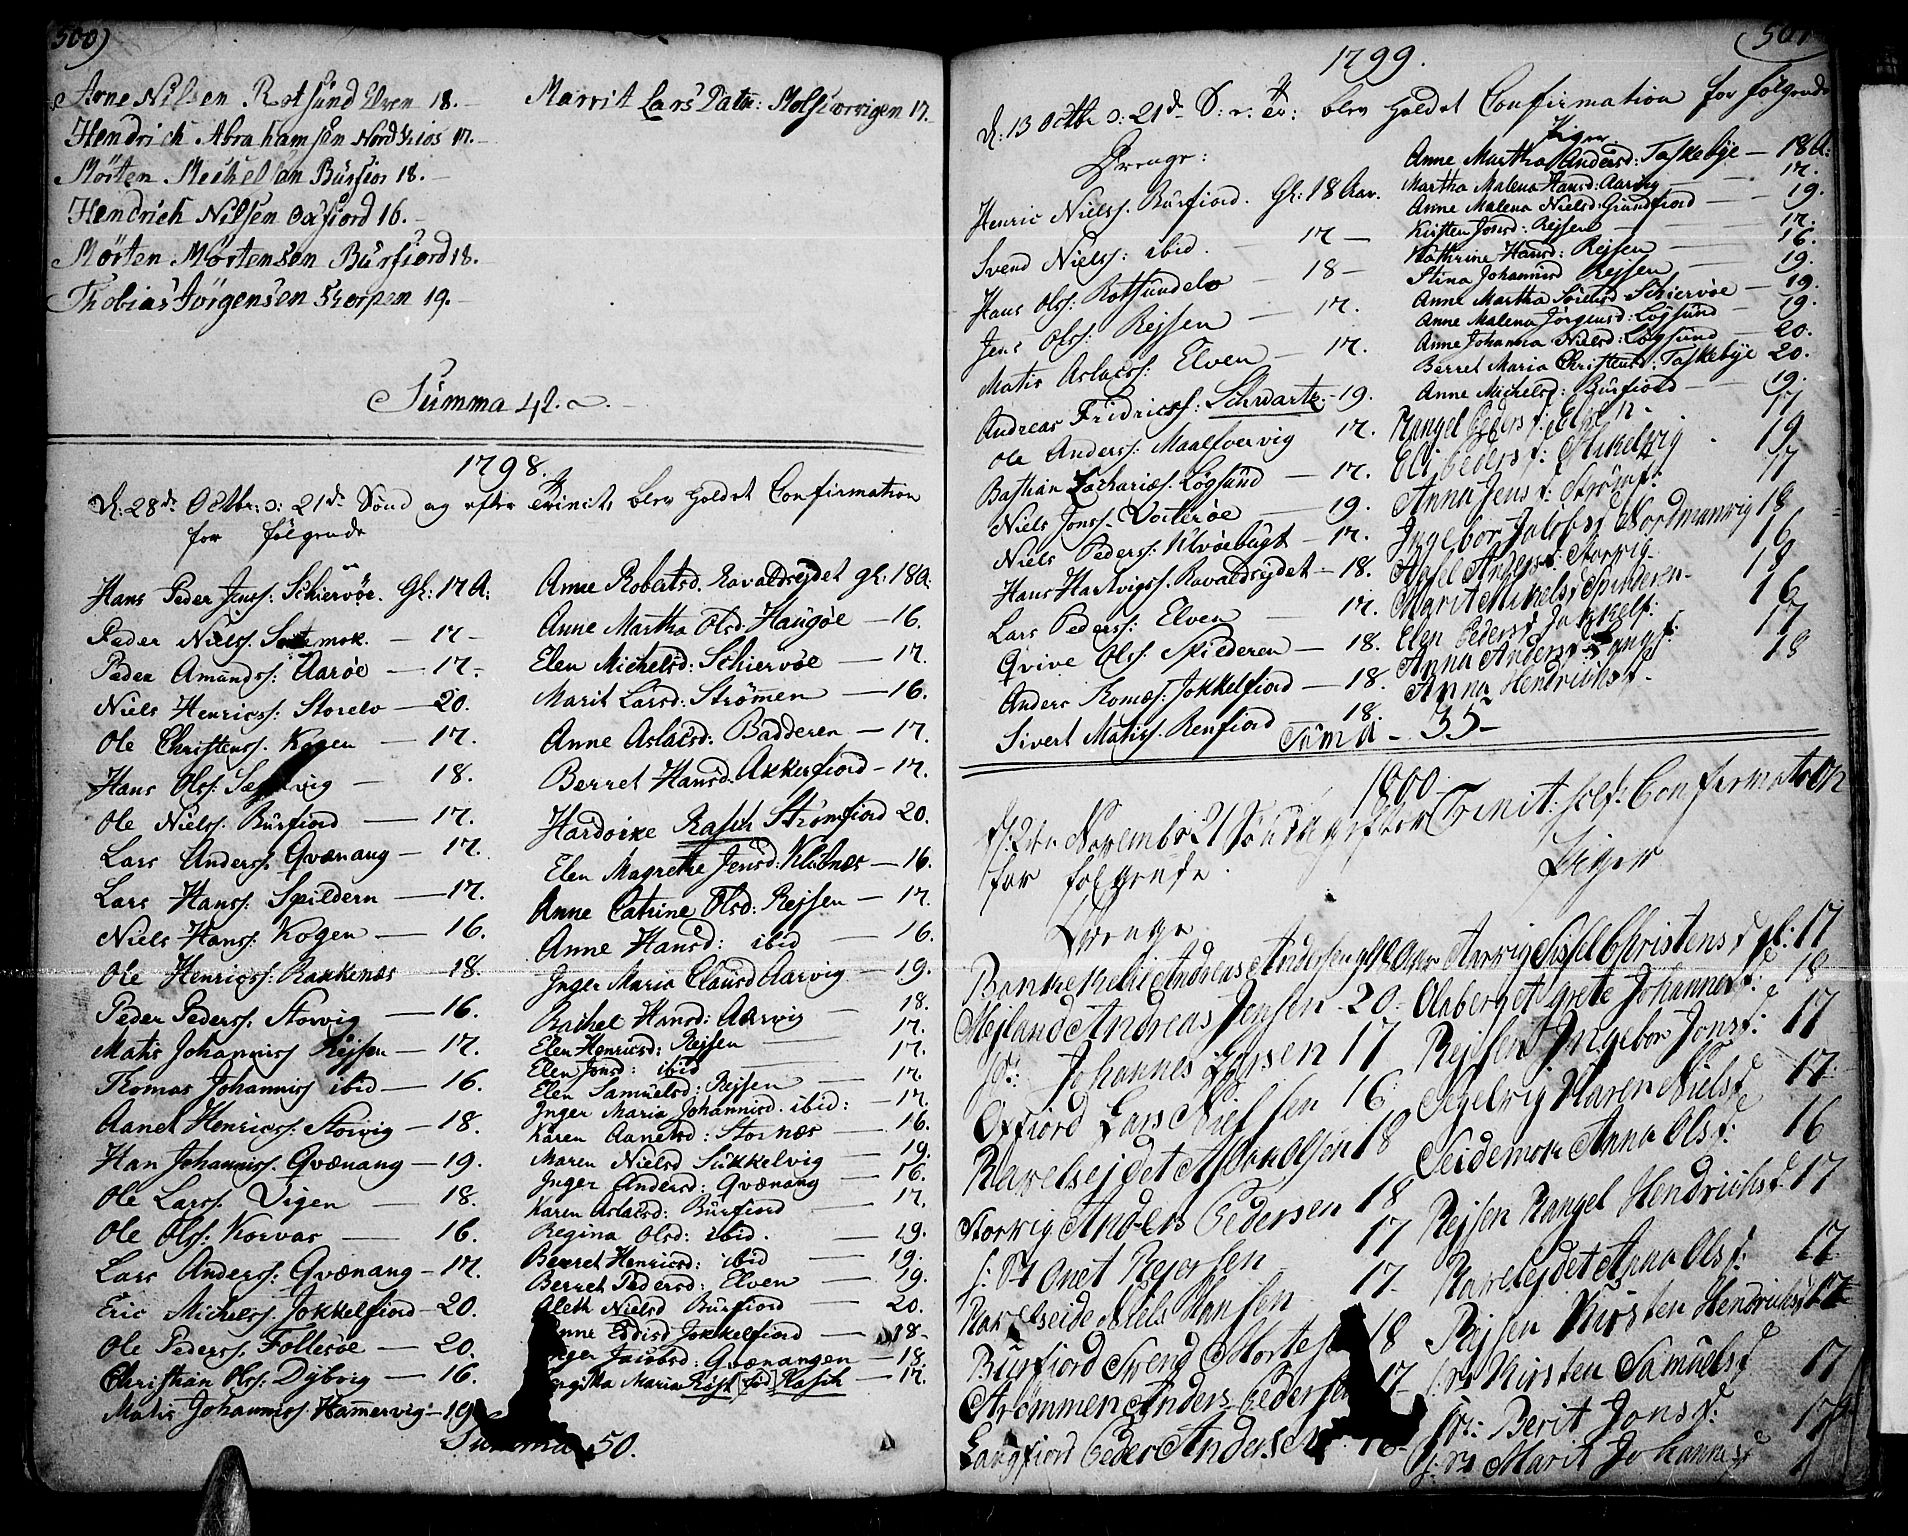 500)
Arne Nilsen Rotsund Elven 18.
Hendrich Abrahamsen Nordkios 17.
Mörten Michelsen Bürfios 18.
Hendrich Nilsen Oxfiord 16.
Mörten Mortensen Bürfiord 18.
Thobias Jörgensen Skorpen 19.
Marrit Lars Datr:
Summa 42.
1798.
D: 28de Octbr: o: 21de Sönd ag efter Trinit: blev holdet Confirmation
for følgende
Hans Peder Jenss: Schiervöe. Gl: 17 A:
Peder Nielss. 17
Peder Amundss: Aarøe 17
Niels Henricss: Storelv 20.
Ole Christenss. Kogen 17.
Hans Olss: 18.
Ole Nielss. Bürfiord 17.
Lars Anderss. Qvænang 17.
Lars Hanss: Spildern 17.
Niels Hanss: Kogen 16.
Ole Henricss: Rakkenæs 18.
Peder Pederss: Storvig 16.
Matis Johanniss Rejsen 17.
Thomas Johanniss ibid 16.
Aanet Henricss: Storvig 18.
Han Johanniss. Qvænang 19.
Ole Larss. Vigen 18.
Ole Olss: Korvas 16.
Lars Anderss: Qvænang 17.
Eric Michelss. Jokkelfiord 20.
Ole Pederss. Follesöe 20.
Christian Olss: Dÿbvig 16.
Matis Johanniss. Hamervig 19
Anne Robertsd. Ravaldsejdet gl: 18 A.
Anne Martha Olsd: Haugøe 16.
Elen Michelsd: Schiervøe 17.
Marit Larsd: Strömen 16.
Anne Aslacsd: Badderen 17.
Berret Hansd. Akkerfiord 17.
Rasch Strömfiord 20.
Elen Magrethe Jensd: Klubnæs 16.
Anne Catrine Olsd: Rejsen 17.
Anne Hansd: ibid 16.
Inger Maria Clausd Aarvig 19.
Rachel Hansd: Aarvig 18.
Elen Henricsd: Rejsen 17.
Elen Jonsd: ibid 17.
Elen Samuelsd: Rejsen 17.
Inger Maria Johannisd. ibid: 17.
Karen Aanetsd: Stornæs 16.
Maren Nielsd Sukkelvig 19.
Inger Andersd: Qvænang 16.
Karen Aslacsd: Bürfiord 17.
Regina Olsd: ibid. 19.
Berret Henricsd: ibid 19.
Berret Pedersd: Elven 19.
Aleth Nielsd Bürfiord 20.
Jokkelfiord 18
Jacobsd: Qvænangen 18.
Maria Röst fød Rasch 17.
Summa 50.
501
1799.
D: 13 Octbr o: 21de S: e: Tr: blev holdet Confirmation for følgende
Drenge:
Henric Nielss. Bürfiord. Gl: 18 Aar.
Svend Nielss: ibid. 17
Hans Olss: Rotsundelv 18
Jens Olss: Rejsen 17.
Matis Aslacss: Elven 17.
Andreas Fridricss: Schwartz 19.
Ole Anderss: 17.
Bastian Zachariæs. Løgsund 17.
Niels Jonss. 19.
Niels Pederss: 17.
Hans Hartvigss. Ravaldsejdet 18.
Lars Pederss: Elven 17.
Qvive Olss. Spilderen 18.
Anders Thomæs: Jokkelfiord 18.
Sivert Matiss. Renfiord 18.
Piger
Anne Martha Andersd: Taskebye 18 A:
Martha Malena Hansd: Aarvig 17.
Anne Malena Nielsd: Grundfiord 19.
Kirsten Jonsd: Rejsen 17.
Kathrine Hansd: Rejsen 16.
Stina Johannisd Rejsen 19.
Anne Martha Sörensd Schiervöe 19.
Anne Malena Jörgensd: Lögsund 19.
Anne Johanna Nielsd: Lögsund 20.
Berret Maria Christensd: Taskebye 20.
Anne Michelsd: Bürfiord 19.
Rangel Peders d: Elven 17
Elis Peders d: 19
Anna Jens d: Strömf: 17
Ingebor Jakobs d Nordmanvig 18
Anders d: Storvig 16
Marit Mikels d Spilderen 18
Elen Peders d Jokkelf: 16
Anna Anders d: Langf: 17
Anna Hendrichs d. 18
Suma 35
1800
d: 2den November 21 Söndag efter Trinit: holt Confirmation
for følgende.
Drenge
Andreas Andersen
Mejland Andreas Jensen 20
Johannes 17
Oxfiord Lars Nielssen 16
18
Storvig Anders Pedersen 18
Onet 17
Niels Hansen 17
Bürfiord Svend 18
Strömmen Anders Pedersen 17
Langfiord Peder Andersen
Piger
Aarvig Sissel Christens d gl: 17
grete Johannes d: 18
Rejsen Ingebor Jons d: 17
Segelvig Karen Niels d 17
Seidemok Anna Ols d: 16
Rejsen Rangel Hendrichs d 17
Ravelsejdet Anna Ols d: 17
Rejsen Kirsten Hendrichs d 17
Kirsten Samuels d 17
Berit Jons d: 17
Marit Johannes d